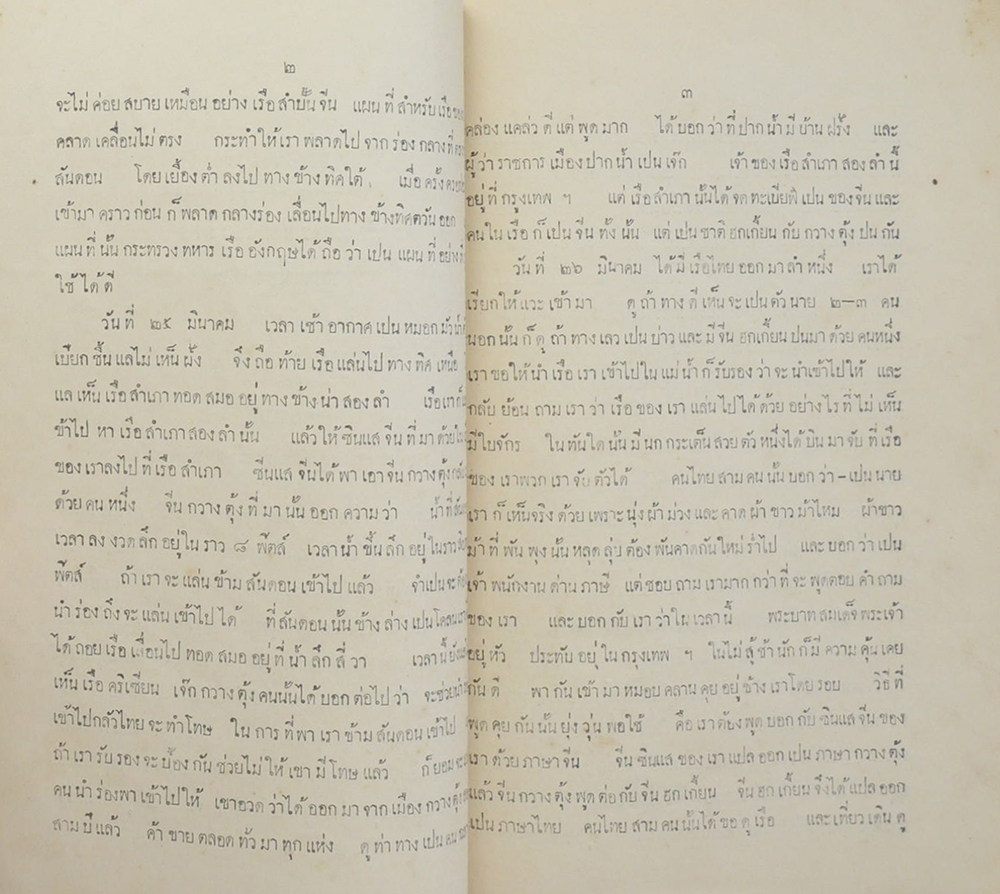 ๒
จะไม่ ค่อย สบาย เหมือน อย่าง เรือ สำปั้น จีน แผน ที่ สำหรับ เรือ
คลาด เคลื่อน ไม่ ตรง กระทำ ให้ เรา พลาด ไป จาก ร่อง กลาง ที่
สันดอน โดย เยื้อง ต่ำ ลง ไป ทาง ข้าง ทิศ ใต้ เมื่อ ครั้ง
เข้า มา คราว ก่อน ก็ พลาด กลาง ร่อง เลื่อน ไป ทาง ข้าง ทิศ ตวัน ออก
แผน ที่ นั้น กระทรวง ทหาร เรือ อังกฤษ ได้ ถือ ว่า เปน แผน ที่ อย่าง
ใช้ ได้ ดี
วัน ที่ ๒๕ มีนาคม เวลา เช้า อากาศ เปน หมอก มัว
เบียก ชื้น แล ไม่ เห็น ฝั่ง จึง ถือ ท้าย เรือ แล่น ไป ทาง ทิศ เหนือ
แล เห็น เรือ สำเภา ทอด สมอ อยู่ ทาง ข้าง น่า สอง ลำ เรือ เรา
ข้าไป หา เรือ สำเภา สอง ลำ นั้น แล้ว ให้ ซินแส จีน ที่ มา ด้วย
ของ เรา ลง ไป ที่ เรือ สำเภา ซินแส จีน ได้ พา เอา จีน กวาง ตุ้ง
ด้วย คน หนึ่ง จีน กวาง ตุ้ง ที่ มา นั้น ออก ความ ว่า น้ำ ที่
เวลา ลง งวด ลึก อยู่ ใน ราว ๘ ฟีตส์ เวลา น้ำ ขึ้น ลึก อยู่ ใน ราว
ฟีตส์ ถ้า เรา จะ แล่น ข้าม สันดอน เข้า ไป แล้ว จำ เปน จะ
นำ ร่อง ถึง จะ แล่น เข้า ไป ได้ ที่ สันดอน นั้น ข้าง ล่าง เปน โคลน
ได้ ถอย เรือ เลื่อน ไป ทอด สมอ อยู่ ที่ น้ำ ลึก สี่ วา เวลา นี้
เห็น เรือ คริเซียน เจ๊ก กวาง ตุ้ง คน นั้น ได้ บอก ต่อ ไป ว่า จะ ช่วย
เข้า ไป กลัว ไทย จะ ทำ โทษ ใน การ ที่ พา เรา ข้าม สันดอน เข้า ไป
ถ้า เรา รับ รอง จะ ป้อง กัน ช่วย ไม่ ให้ เขา มี โทษ แล้ว ก็ ยอม
คน นำ ร่อง พา เข้า ไป ให้ เขา อวด ว่า ได้ ออก มา จาก เมือง กวาง ตุ้ง
สาม ปี แล้ว ค้า ขาย ตลอด ทั่ว มา ทุก แห่ง ดู ท่า ทาง เปน คน
๓
คล่อง แคล่ว ดี แต่ พูด มาก ได้ บอก ว่า ที่ ปาก น้ำ มี บ้าน ฝรั่ง และ
ผู้ ว่า ราชการ เมือง ปาก น้ำ เปน เจ๊ก เจ้า ของ เรือ สำเภา สอง ลำ นี้
อยู่ ที่ กรุงเทพ ฯ แต่ เรือ สำเภา นั้น ได้ จด ทะเบียฬ เปน ของ จีน และ
คน ใน เรือ ก็ เปน จีน ทั้ง นั้น แต่ เปน ชาติ ฮกเกี้ยน กับ กวาง ตุ้ง ปน กัน
วัน ที่ ๒๖ มีนาคม ได้ มี เรือ ไทย ออก มา ลำ หนึ่ง เรา ได้
เรียก ให้ แวะ เข้า มา ดู ถ้า ทาง ดี เห็น จะ เปน ตัว นาย ๒—๓ คน
นอก นั้น ก็ ดู ถ้า ทาง เลว เปน บ่าว และ มี จีน ฮกเกี้ยน ปน มา ด้วย คน หนึ่ง
เรา ขอ ให้ นำ เรือ เรา เข้า ไป ใน แม่ น้ำ ก็ รับรอง ว่า จะ นำ เข้า ไป ให้ และ
กลับ ย้อน ถาม เรา ว่า เรือ ของ เรา แล่น ไป ได้ ด้วย อย่าง ไร ที่ ไม่ เห็น
มี ใบ จักร ใน ทัน ใด นั้น มี นก กระเต็น สวย ตัว หนึ่ง ได้ บิน มา จับ ที่ เรือ
ของ เรา พวก เรา จับ ตัว ได้ คน ไทย สาม คน นั้น บอก ว่า - เปน นาย
เรา ก็ เห็น จริง ด้วย เพราะ นุ่ง ผ้า ม่วง และ คาด ผ้า ขาว ม้า ไหม ผ้า ขาว
ม้า ที่ พัน พุง นั้น หลุด ลุ่ย ต้อง พัน คาด กัน ใหม่ ร่ำ ไป และ บอก ว่า เปน
เจ้า พนักงาน ด่าน ภาษี แต่ ชอบ ถาม เรา มาก กว่า ที่ จะ พูด ตอบ คำ ถาม
ของ เรา และ บอก กับ เรา ว่า ใน เวลา นี้ พระบาท สมเด็จ พระเจ้า
อยู่ หัว ประทับ อยู่ ใน กรุงเทพ ฯ ใน ไม่ สู้ ช้า นัก ก็ มี ความ คุ้น เคย
กัน ดี พา กัน เข้า มา หมอบ คลาน คุย อยู่ ข้าง เรา โดย รอบ วิธี ที่
พูด คุย กัน นั้น ยุ่ง วุ่น พอ ใช้ คือ เรา ต้อง พูด บอก กับ ซินแส จีน ของ
เรา ด้วย ภาษา จีน จีน ซินแส ของ เรา แปล ออก เปน ภาษา กวาง ตุ้ง
แล้ว จีน กวาง ตุ้ง พูด ต่อ กับ จีน ฮก เกี้ยน จีน ฮก เกี้ยน จึง ได้ แปล ออก
เปน ภาษา ไทย คน ไทย สาม คน นั้น ได้ ขอ ดู เรือ และ เที่ยว เดิน ดู